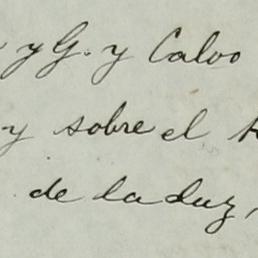 y G. y Calvo
y sobre el
de la luz,